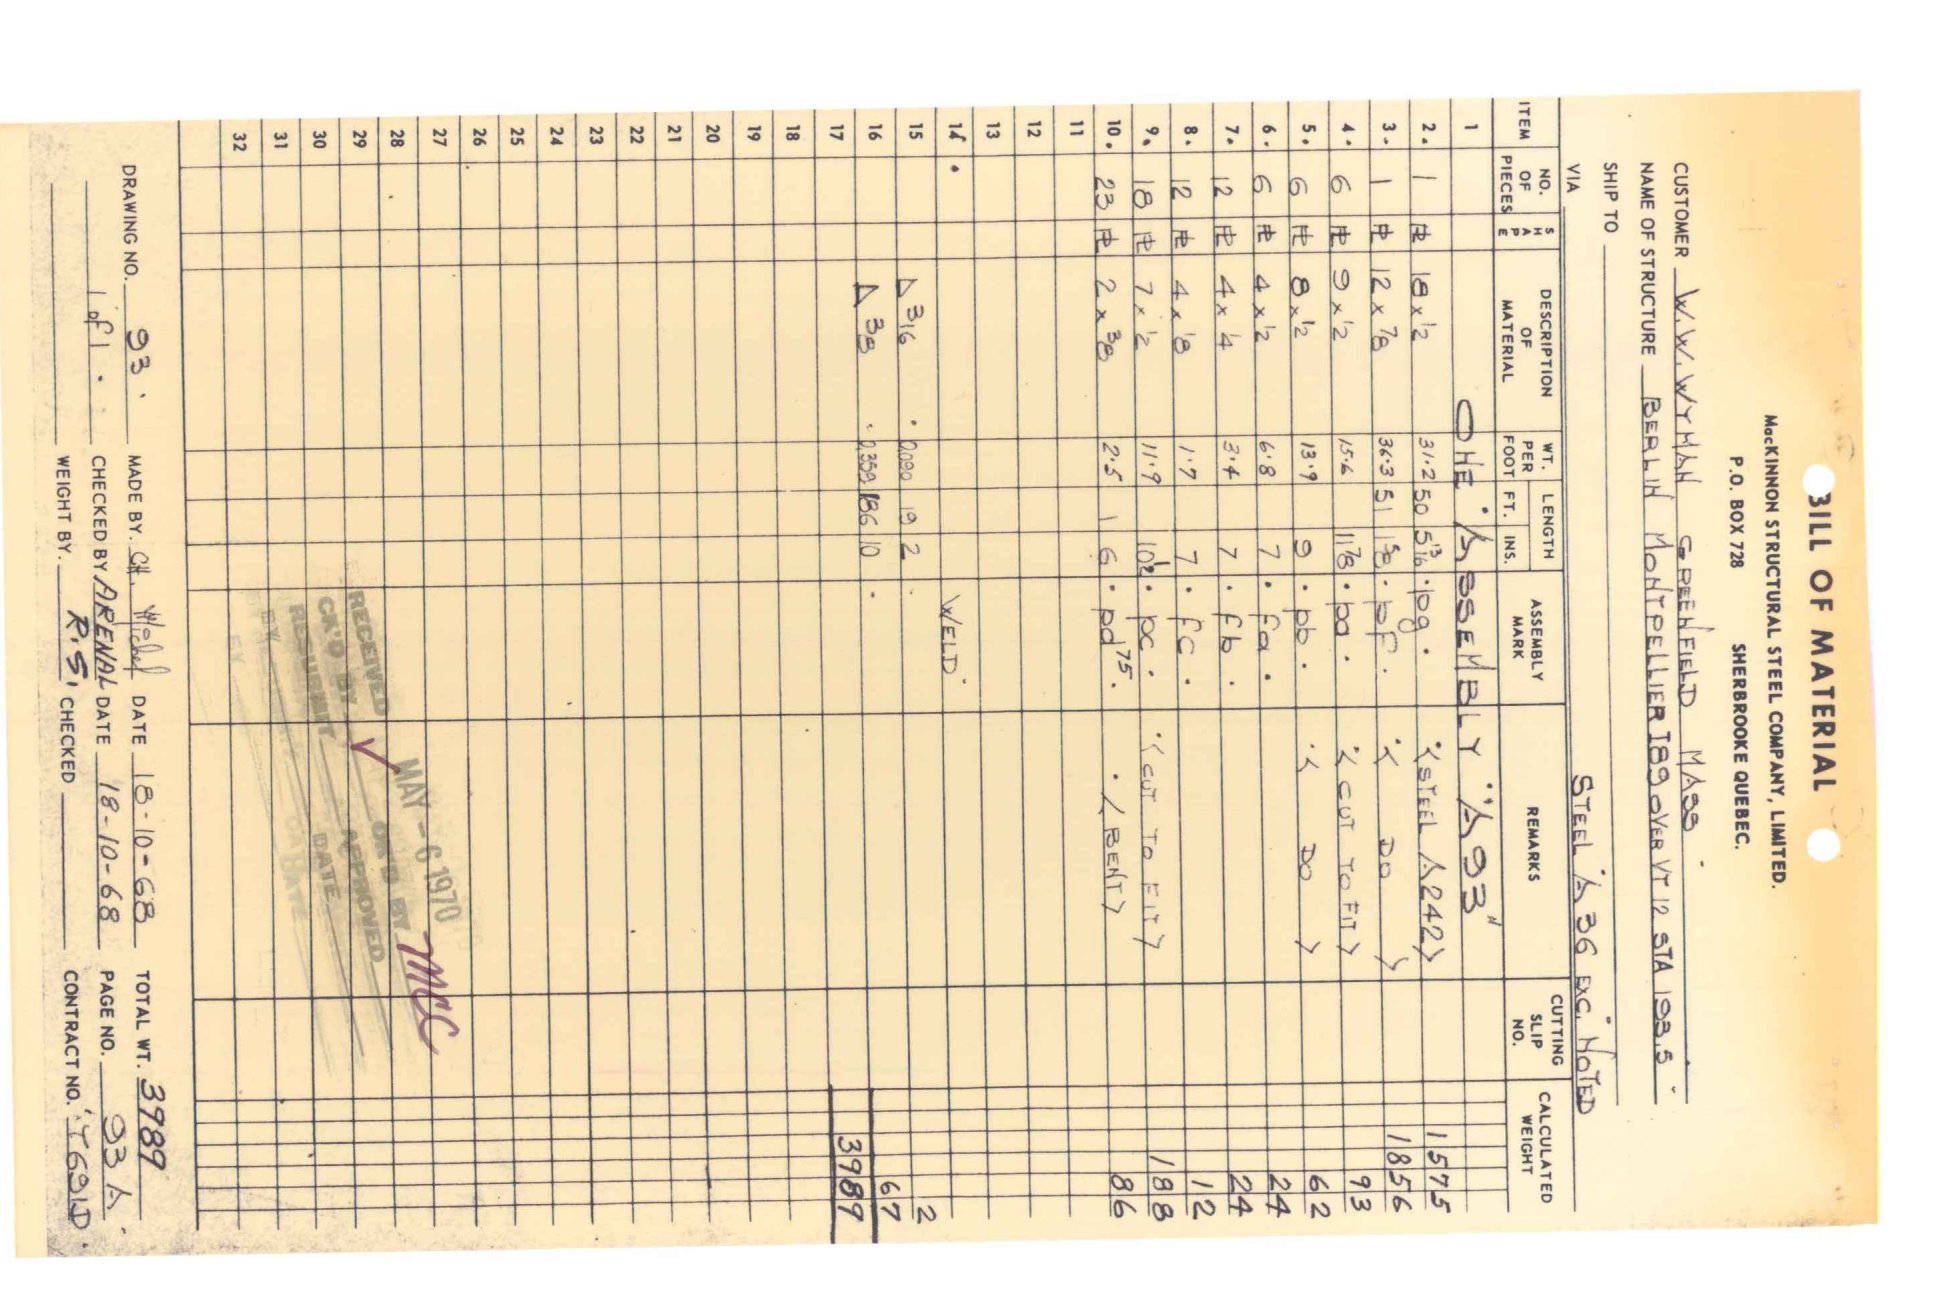 BILL OF MATERIAL
MacKINNON STRUCTURAL STEEL COMPANY, LIMITED.
P.O. BOX 728 SHERBROOKE QUEBEC.
CUSTOMER W.W. WYMAN GREENFIELD MASS.
NAME OF STRUCTURE BERLIN MONTPELLIER I89 OVER VT 12 STA 193.5
SHIP TO
VIA STEEL A 36 EXC. NOTED
ITEM NO. OF PIECES SHAPE DESCRIPTION OF MATERIAL WT. PER FOOT LENGTH FT. INS. ASSEMBLY MARK REMARKS CUTTING SLIP NO. CALCULATED WEIGHT
1 ONE ASSEMBLY "A93"
2. 1 PL 18 x 1/2 31.2 50 5 13/16 pg. <STEEL A242> 1575
3. 1 PL 12 x 7/8 36.3 51 1 5/8 pf. < DO > 1856
4. 6 PL 9 x 1/2 15.6 11 7/8 pa. < CUT TO FIT > 93
5. 6 PL 8 x 1/2 13.9 9 pb. < DO > 62
6. 6 PL 4 x 1/2 6.8 7 fa. 24
7. 12 PL 4 x 1/4 3.4 7 fb. 24
8. 12 PL 4 x 1/8 1.7 7 fc. 12
9. 18 PL 7 x 1/2 11.9 10 1/2 pc. < CUT TO FIT > 188
10. 23 PL 2 x 3/8 2.5 1 6 pd75. < BENT > 86
11
12
13
14 WELD
15 △ 3/16 0.090 19 2 2
16 △ 3/8 0.359 186 10 67
17 3989
18
19
20
21
22
23
24
25
26
27
28
29
30
31
32
MAY - 6 1970
RECEIVED
CK'D BY OK'D BY MCC
RESUBMIT APPROVED
BY DATE
BY DATE
DRAWING NO. 93. MADE BY. DATE 18-10-68 TOTAL WT. 3989
1 of 1. CHECKED BY ARENAL DATE 18-10-68 PAGE NO. 93 A
WEIGHT BY. R.S. CHECKED CONTRACT NO. T691D